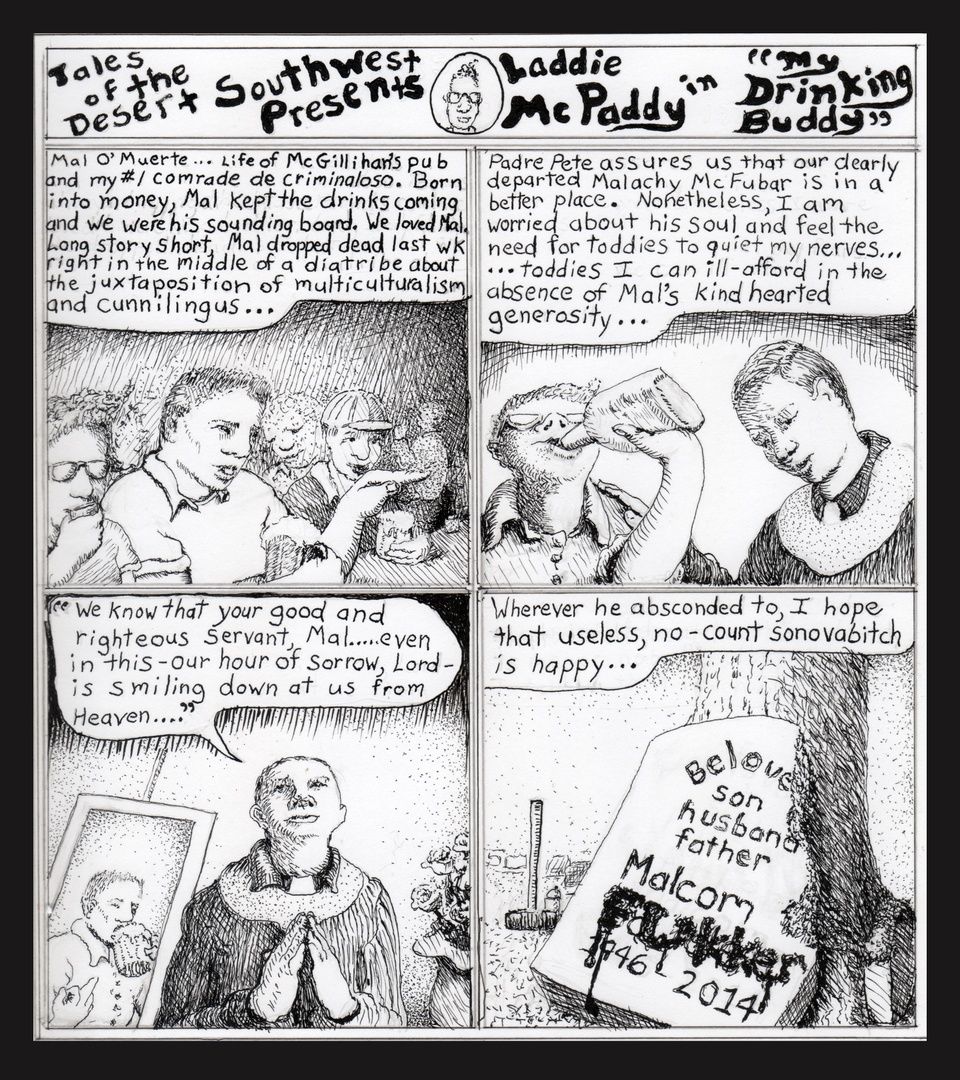 Tales of the Desert Southwest Presents Laddie McPaddy in "My Drinking Buddy"
Mal O'Muerte... Life of McGillihan's pub
and my #1 comrade de criminaloso. Born
into money, Mal kept the drinks coming
and we were his sounding board. We loved Mal.
Long story short, Mal dropped dead last wk
right in the middle of a diatribe about
the juxtaposition of multiculturalism
and cunnilingus...
Padre Pete assures us that our dearly
departed Malachy McFubar is in a
better place. Nonetheless, I am
worried about his soul and feel the
need for toddies to quiet my nerves...
...toddies I can ill-afford in the
absence of Mal's kind hearted
generosity...
"We know that your good and
righteous servant, Mal.....even
in this-our hour of sorrow, Lord-
is smiling down at us from
Heaven...."
Wherever he absconded to, I hope
that useless, no-count sonovabitch
is happy...
Belove
son
husband
father
Malcom
1946 2014